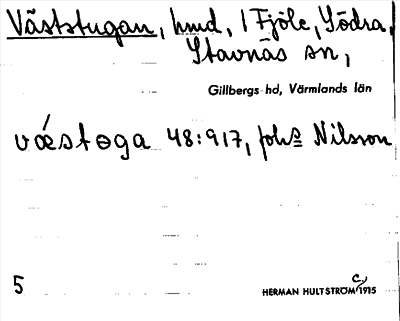 Väststugan, hmd, 1 Fjöle, Södra,
Stavnäs sn,
Gillbergs hd, Värmlands län
vǽstoga 48:917, Johs Nilsson
5
HERMAN HULTSTRÖM C. 1915